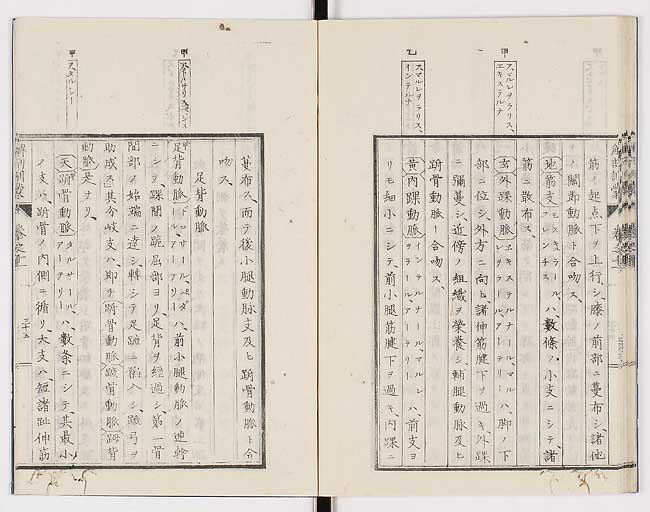 甲
スマルレヲラリス、
エキステルナ
乙
スマルレヲラリス、
インテルナ
筋ノ起点下ヲ上行シ、膝ノ前部ニ蔓布シ、諸他
ノ關節動脈ト合吻ス。
地筋支 モスキラール、ブレンチス ハ、數條ノ小支ニシテ、諸
筋ニ散布ス。
玄外踝動脈 エキステルナール、マルレヲラール、アーテリー ハ、脚ノ下
部ニ位シ、外方ニ向ヒ諸伸筋腱下ヲ過キ、外踝
ニ彌蔓シ、近傍ノ組織ヲ榮養シ、輔腿動脈及ヒ
跗骨動脈ト合吻ス。
黄内踝動脈 インテルナール、マルレヲラール、アーテリー ハ、前支ヨ
リモ細小ニシテ、前小腿筋腱下ヲ過キ、内踝ニ
甲
甲
タルシー
蔓布ス、而テ後小腿動脈支及ヒ跗骨動脈ト合
吻ス。
足背動脈
足背動脈 ドロサール、ペダール、アーテリー ハ、前小腿動脈ノ連幹
ニシテ、踝間ノ跪屈部ヨリ、足背ヲ經過シ、第一骨
間部ノ始端ニ達シ、轉シテ足蹠ニ陷入シ、蹠弓ヲ
助成ス、其分岐支ハ、即チ跗骨動脈蹠骨動脈𧿹背
動脈是ナリ、
天跗骨動脈 タルサール、アーテリー ハ、數条ニシテ、其最小
ノ支ハ、跗骨ノ内側ニ循リ、大支ハ短諸趾伸筋
三十五